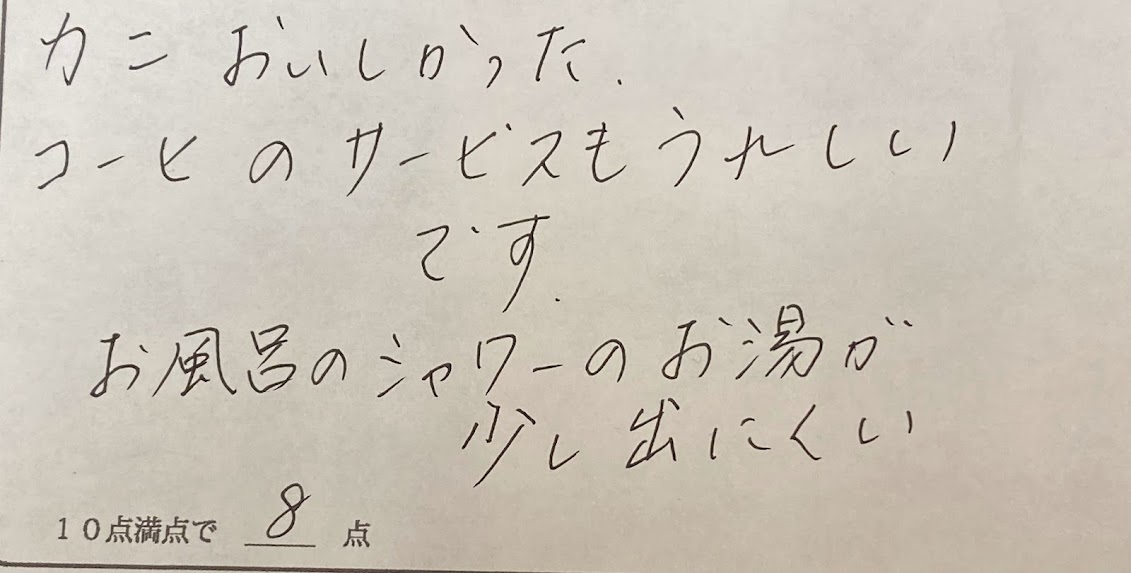 カニ おいしかった.
コーヒのサービスもうれしい
です.
お風呂のシャワーのお湯が
少し出にくい
10点満点で 8 点